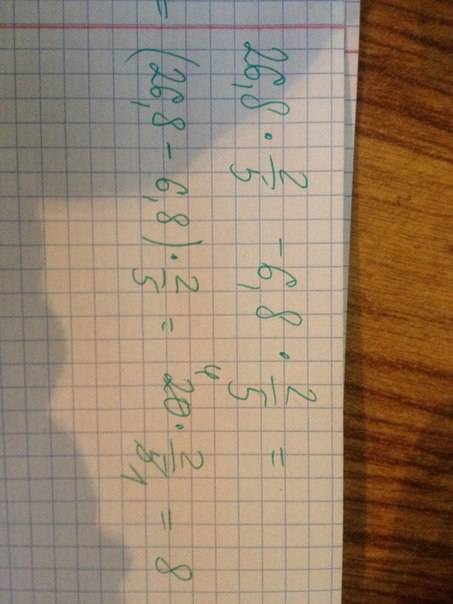 26,8 · 2/5 - 6,8 · 2/5 =
= (26,8 - 6,8) · 2/5 = 20 4 · 2/5 1 = 8